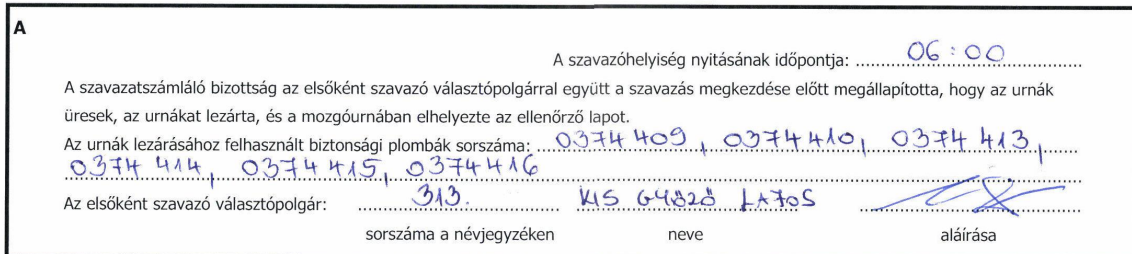 A
A szavazóhelyiség nyitásának időpontja: 06:00
A szavazatszámláló bizottság az elsőként szavazó választópolgárral együtt a szavazás megkezdése előtt megállapította, hogy az urnák
üresek, az urnákat lezárta, és a mozgóurnában elhelyezte az ellenőrző lapot.
Az urnák lezárásához felhasznált biztonsági plombák sorszáma: 0374409, 0374410, 0374413,
0374414, 0374415, 0374416
Az elsőként szavazó választópolgár: 313. KIS GYŐZŐ LAJOS
sorszáma a névjegyzéken neve aláírása